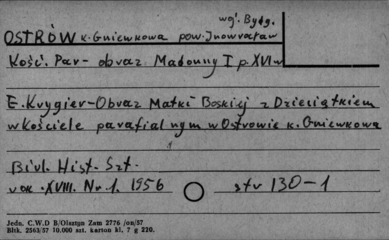 wg'. Bydg.
OSTRÓW k. Gniewkowa pow. Inowrocław
Kość. Par- obraz Madonny I p. XVI w
E. Krygier-Obraz Matki Boskiej z Dzieciątkiem
w Kościele parafialnym w Ostrowie k. Gniewkowa
Biul. Hist. Szt.
rok. XVIII. Nr. 1. 1956 str 130-1
Jedn. C.W.D B/Olsztyn Zam 2776 /on/57
Bltk. 2563/57 10.000 szt. karton kl. 7 g 220.